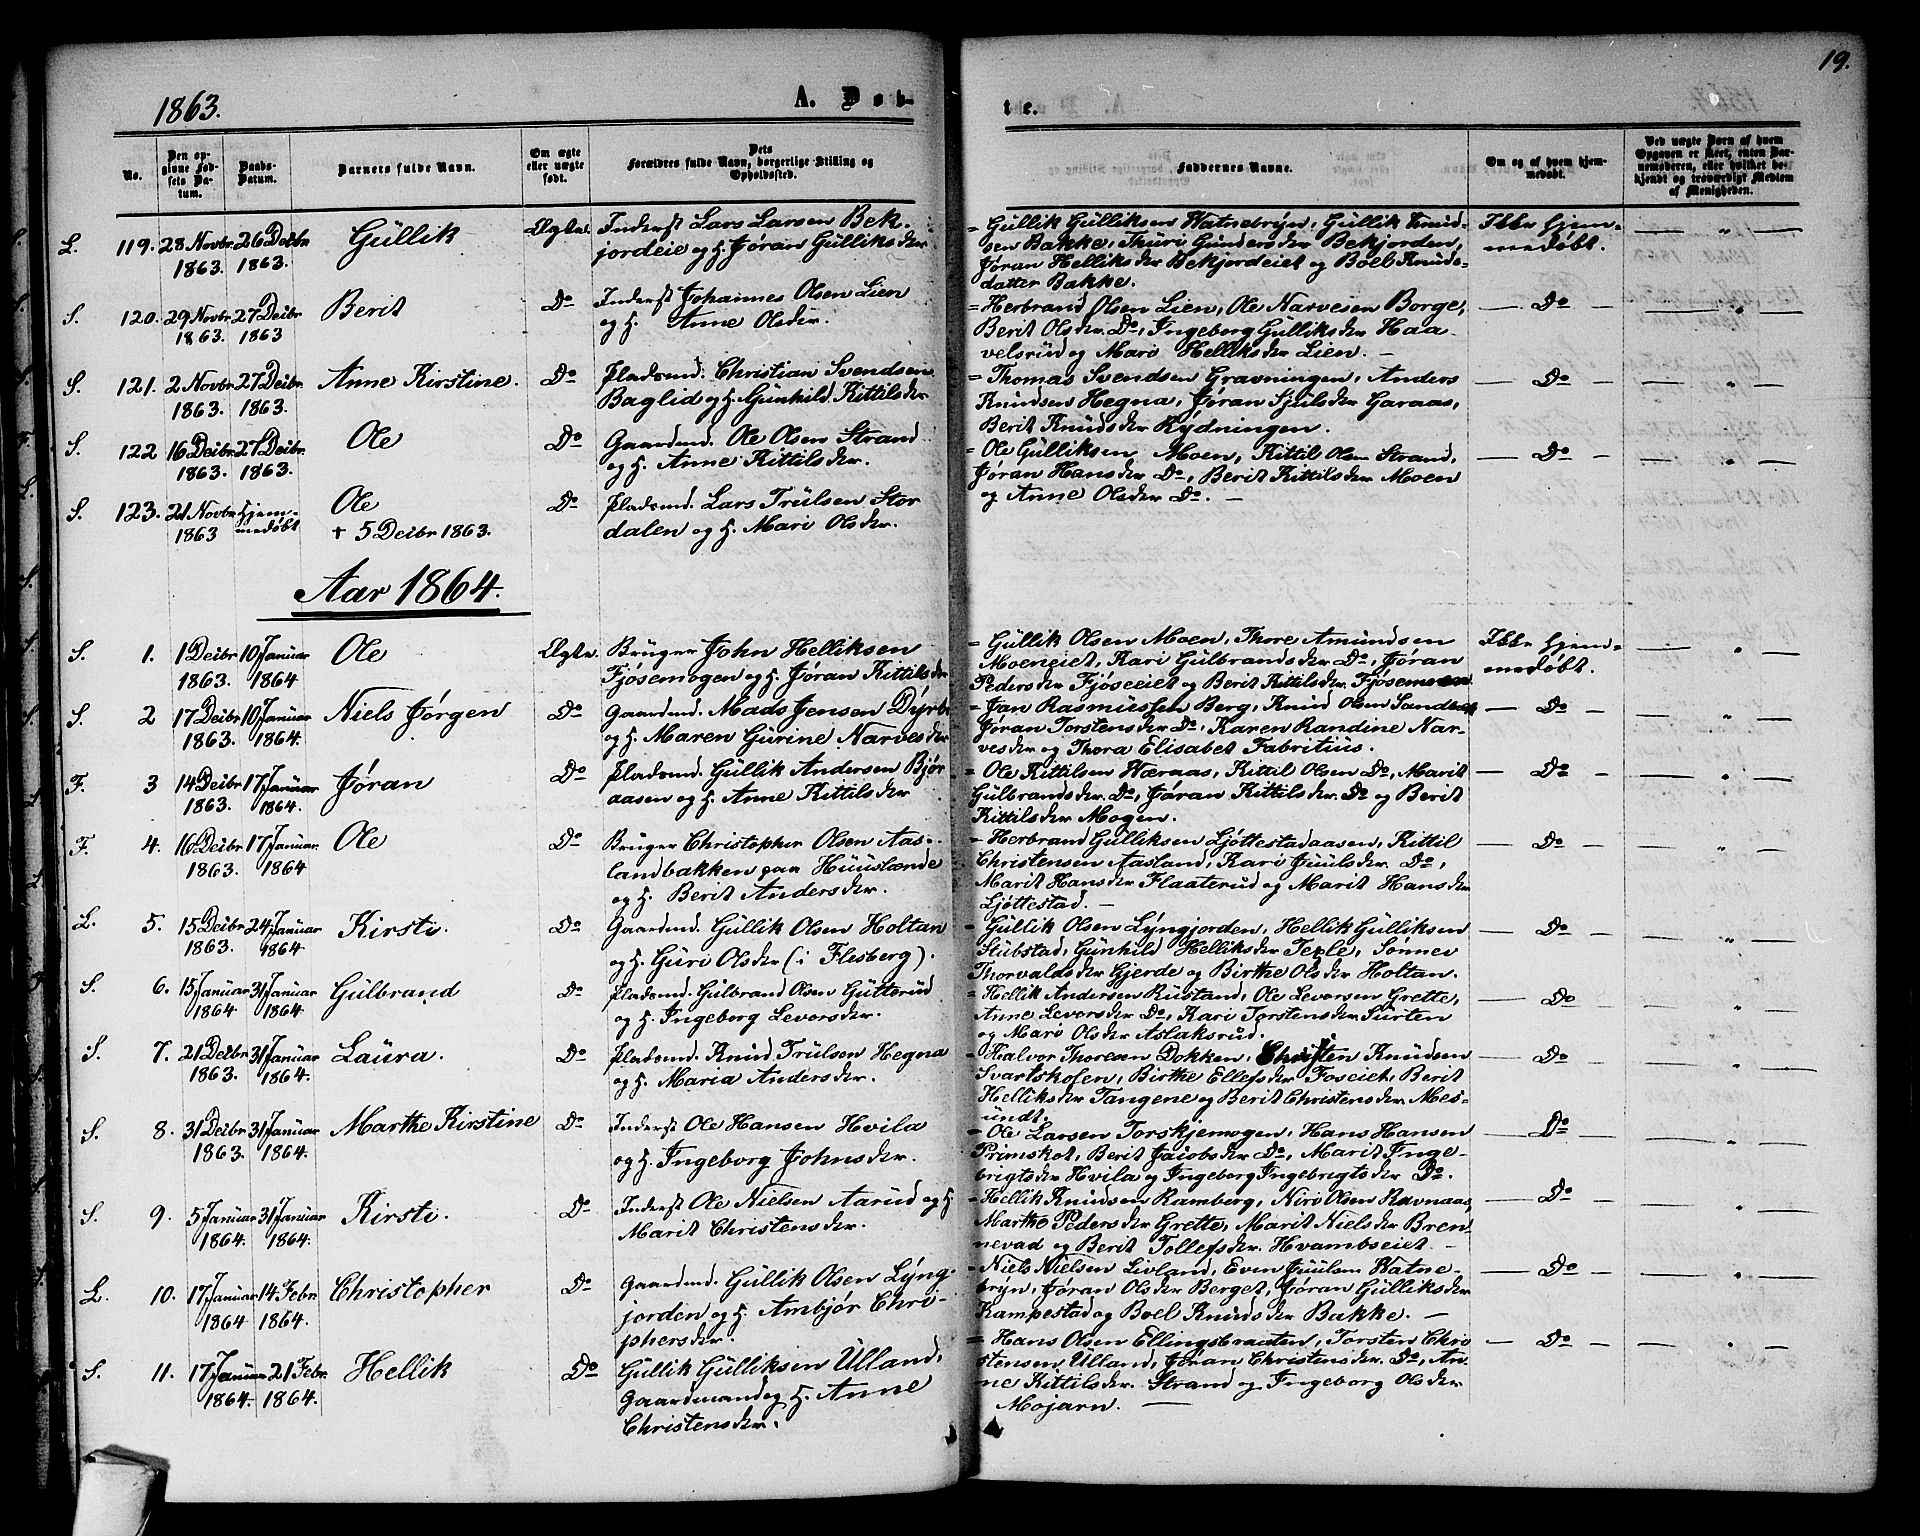 19.
1863.
A. Døb-
te.
No.
Den opgivne Fødsels Datum.
Daabs-Datum.
Barnets fulde Navn.
Om ægte eller uægte født.
Dets Forældres fulde Navn, borgerlige Stilling og Opholdssted.
Faddernes Navne.
Om og af hvem hjemmedøbt.
Ved uægte Børn af hvem Opgaven er skeet, enten Barnemoderen, eller hvilket bekjendt og troværdigt Medlem af Menigheden.
L. 119. 28 Novbr 1863. 26 Decbr 1863. Güllik Ægte. Inderst Lars Larsen Bek-
jordeie og H. Jøran Gülliksder
= Güllik Gülliksen Watnebrÿn, Güllik Knüd-
sen Bakke, Thüri Günders der Bekjorden,
Jøran Helliks der Bekjordeiet og Boel Knüds-
datter Bakke.
Ikke hjem-
medøbt.
S. 120. 29 Novbr 1863. 27 Decbr 1863 Berit Do Inderst Johannes Olsen Lien
og H. Anne Olsder.
= Herbrand Olsen Lien, Ole Narvesen Borge,
Berit Olsder Do, Ingeborg Gülliksder Haa-
velsrüd og Mari Helliksder Lien. —
— Do —
S. 121. 2 Novbr 1863. 27 Decbr 1863. Anne Kirstine. Do Pladsmd. Christian Svendsen
Baglid og H. Günhild Kittilsder
= Thomas Svendsen Gravningen, Anders
Knüdsen Hegna, Jøran Sjülsder Garaas,
Berit Knüdsder Rÿdningen.
— Do —
S. 122 16 Decbr 1863. 27 Decbr 1863. Ole Do Gaardmd. Ole Olsen Strand
og H. Anne Kittilsder.
= Ole Gülliksen Moen, Kittil Olsen Strand,
Jøran Hansder Do, Berit Kittilsder Moen
og Anne Olsder Do. —
— Do —
S. 123. 21 Novbr 1863 Hjem-
medøbt Ole
+ 5 Decbr 1863. Do Pladsmd. Lars Trülsen Stor
dalen og H. Mari Olsder.
Aar 1864.
S. 1. 1 Decbr 1863. 10 Januar 1864 Ole Ægte. Brüger John Helliksen
Fjösemogen og H. Jøran Kittilsder
= Güllik Olsen Moen, Thore Amündsen
Moeneiet, Kari Gülbrandsder Do, Jøran
Pedersder Fjöseeiet og Berit Kittilsder Fjösemoen
Ikke hjem-
medøbt.
S. 2 17 Decbr 1863. 10 Januar 1864. Niels Jørgen Do Gaardmd. Mads Jensen Dÿrb
og H. Maren Gürine Narvesder
= Jan Rasmüssen Berg, Knüd Olsen Sandbæk
Jøran Torstensder Do, Karen Randine Nar-
vesder og Thora Elisabet Fabritiüs.
— Do —
F. 3 14 Decbr 1863. 17 Januar 1864. Jøran Do Pladsmd. Güllik Andersen Bjør
aasen og H. Anne Kittilsder
= Ole Kittilsen Wæraas, Kittil Olsen Do, Marit
Gülbrandsder Do, Jøran Kittilsder Do og Berit
Kittilsder Mogen.
— Do —
F. 4. 16 Decbr 1863. 17 Januar 1864 Ole Do Brüger Christopher Olsen Aas-
landbakken paa Hüüslænde
og H. Berit Andersder.
= Herbrand Gülliksen Ljöttestadaasen, Kittil
Christensen Aasland, Kari Jüülsder Do,
Marit Hansder Flaaterüd og Marit Hansder
Ljöttestad. —
— Do —
L. 5. 15 Decbr 1863. 24 Januar 1864 Kirsti. Do Gaardmd. Güllik Olsen Holtan
og H. Güri Olsder (i Flesberg).
= Güllik Olsen Lÿngjorden, Hellik Gülliksen
Stübstad, Günhild Helliksder Teple, Sønnei
Thorvaldsder Gjerde og Birthe Olsder Holtan.
— Do —
S. 6. 15 Januar 1864 31 Januar 1864. Gülbrand Do Pladsmd. Gülbrand Olsen Gütterüd
og H. Ingeborg Levorsder.
= Hellik Andersen Rüstand, Ole Levorsen Grette,
Anne Levorsder Do, Kari Torstensder Sürten
og Mari Olsder Aslaksrüd.
— Do
S. 7. 21 Decbr 1863. 31 Januar 1864. Laüra. Do Pladsmd. Knüd Trülsen Hegna
og H. Maria Andersder.
= Halvor Thoresen Dokken, Christen Knüdsen
Svartskofen, Birthe Ellefsder Foseiet, Berit
Helliksder Tangene og Berit Christensder Mes-
ündt.
— Do —
S. 8. 31 Decbr 1863. 31 Januar 1864. Marthe Kirstine Do Inderst Ole Hansen Hvila
og H. Ingeborg Johnsder.
= Ole Larsen Torskjemogen, Hans Hansen
Primskot, Berit Jacobsder Do, Marit Inge-
brigtsder Hvila og Ingeborg Ingebrigtsder Do.
— Do —
S. 9. 5 Januar 1864. 31 Januar 1864. Kirsti. Do Inderst Ole Nielsen Aarud og H
Marit Christensder.
= Hellik Knüdsen Ramberg, Niri Olsen Ravnaas,
Marthe Pedersder Grette, Marit Nielsder Bren-
nevad og Berit Tollefsder Hvambseiet —
— Do —
L. 10. 17 Januar 1864 14 Febr 1864. Christopher Do Gaardmd. Güllik Olsen Lÿng-
jorden og H. Ambjør Chri-
phersder.
= Niels Nielsen Livland, Even Jüülsen Watne-
brÿn, Jøran Olsder Berget, Jøran Gülliksder
Kampestad og Boel Knüdsder Bakke. —
— Do —
S. 11. 17 Januar 1864. 21 Febr 1864. Hellik Do Güllik Gülliksen Ülland,
Gaardmand og H. Anne
Christensder.
= Hans Olsen Ellingsbraaten, Torsten Chri
stensen Ülland, Jøran Christensder Do, An-
ne Kittilsder Strand og Ingeborg Olsder
Mojarn. —
— Do —